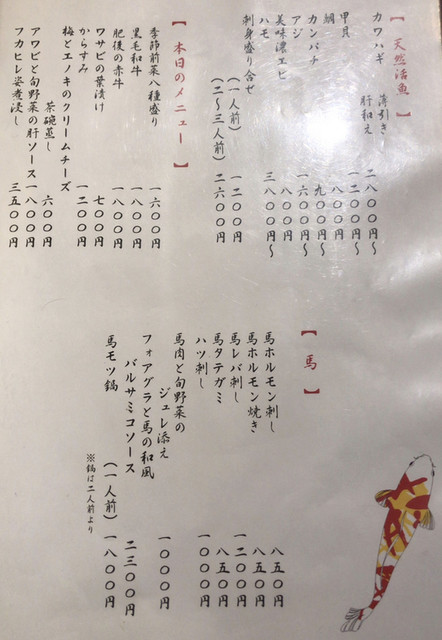 【天然活魚】
カワハギ 薄引き 二八〇〇円〜
肝和え 一二〇〇円〜
甲貝
鯛 八〇〇円
カンパチ 九〇〇円〜
アジ 一六〇〇円〜
美味濃エビ 八〇〇円
ハモ 三八〇〇円〜
刺身盛り合せ
(一人前) 一二〇〇円
(二〜三人前) 二六〇〇円
【本日のメニュー】
季節前菜八種盛り 一六〇〇円
黒毛和牛 一八〇〇円
肥後の赤牛 一八〇〇円
ワサビの葉漬け 七〇〇円
からすみ 一二〇〇円
梅とエノキのクリームチーズ
茶碗蒸し 六〇〇円
アワビと旬野菜の肝ソース 一八〇〇円
フカヒレ姿煮浸し 三五〇〇円
【馬】
馬ホルモン刺し 八五〇円
馬ホルモン焼き 八五〇円
馬レバ刺し 一二〇〇円
馬タテガミ 八五〇円
ハツ刺し 一〇〇〇円
馬肉と旬野菜の
ジュレ添え 一〇〇〇円
フォアグラと馬の和風
バルサミコソース 二三〇〇円
馬モツ鍋 (一人前) 一八〇〇円
※鍋は二人前より